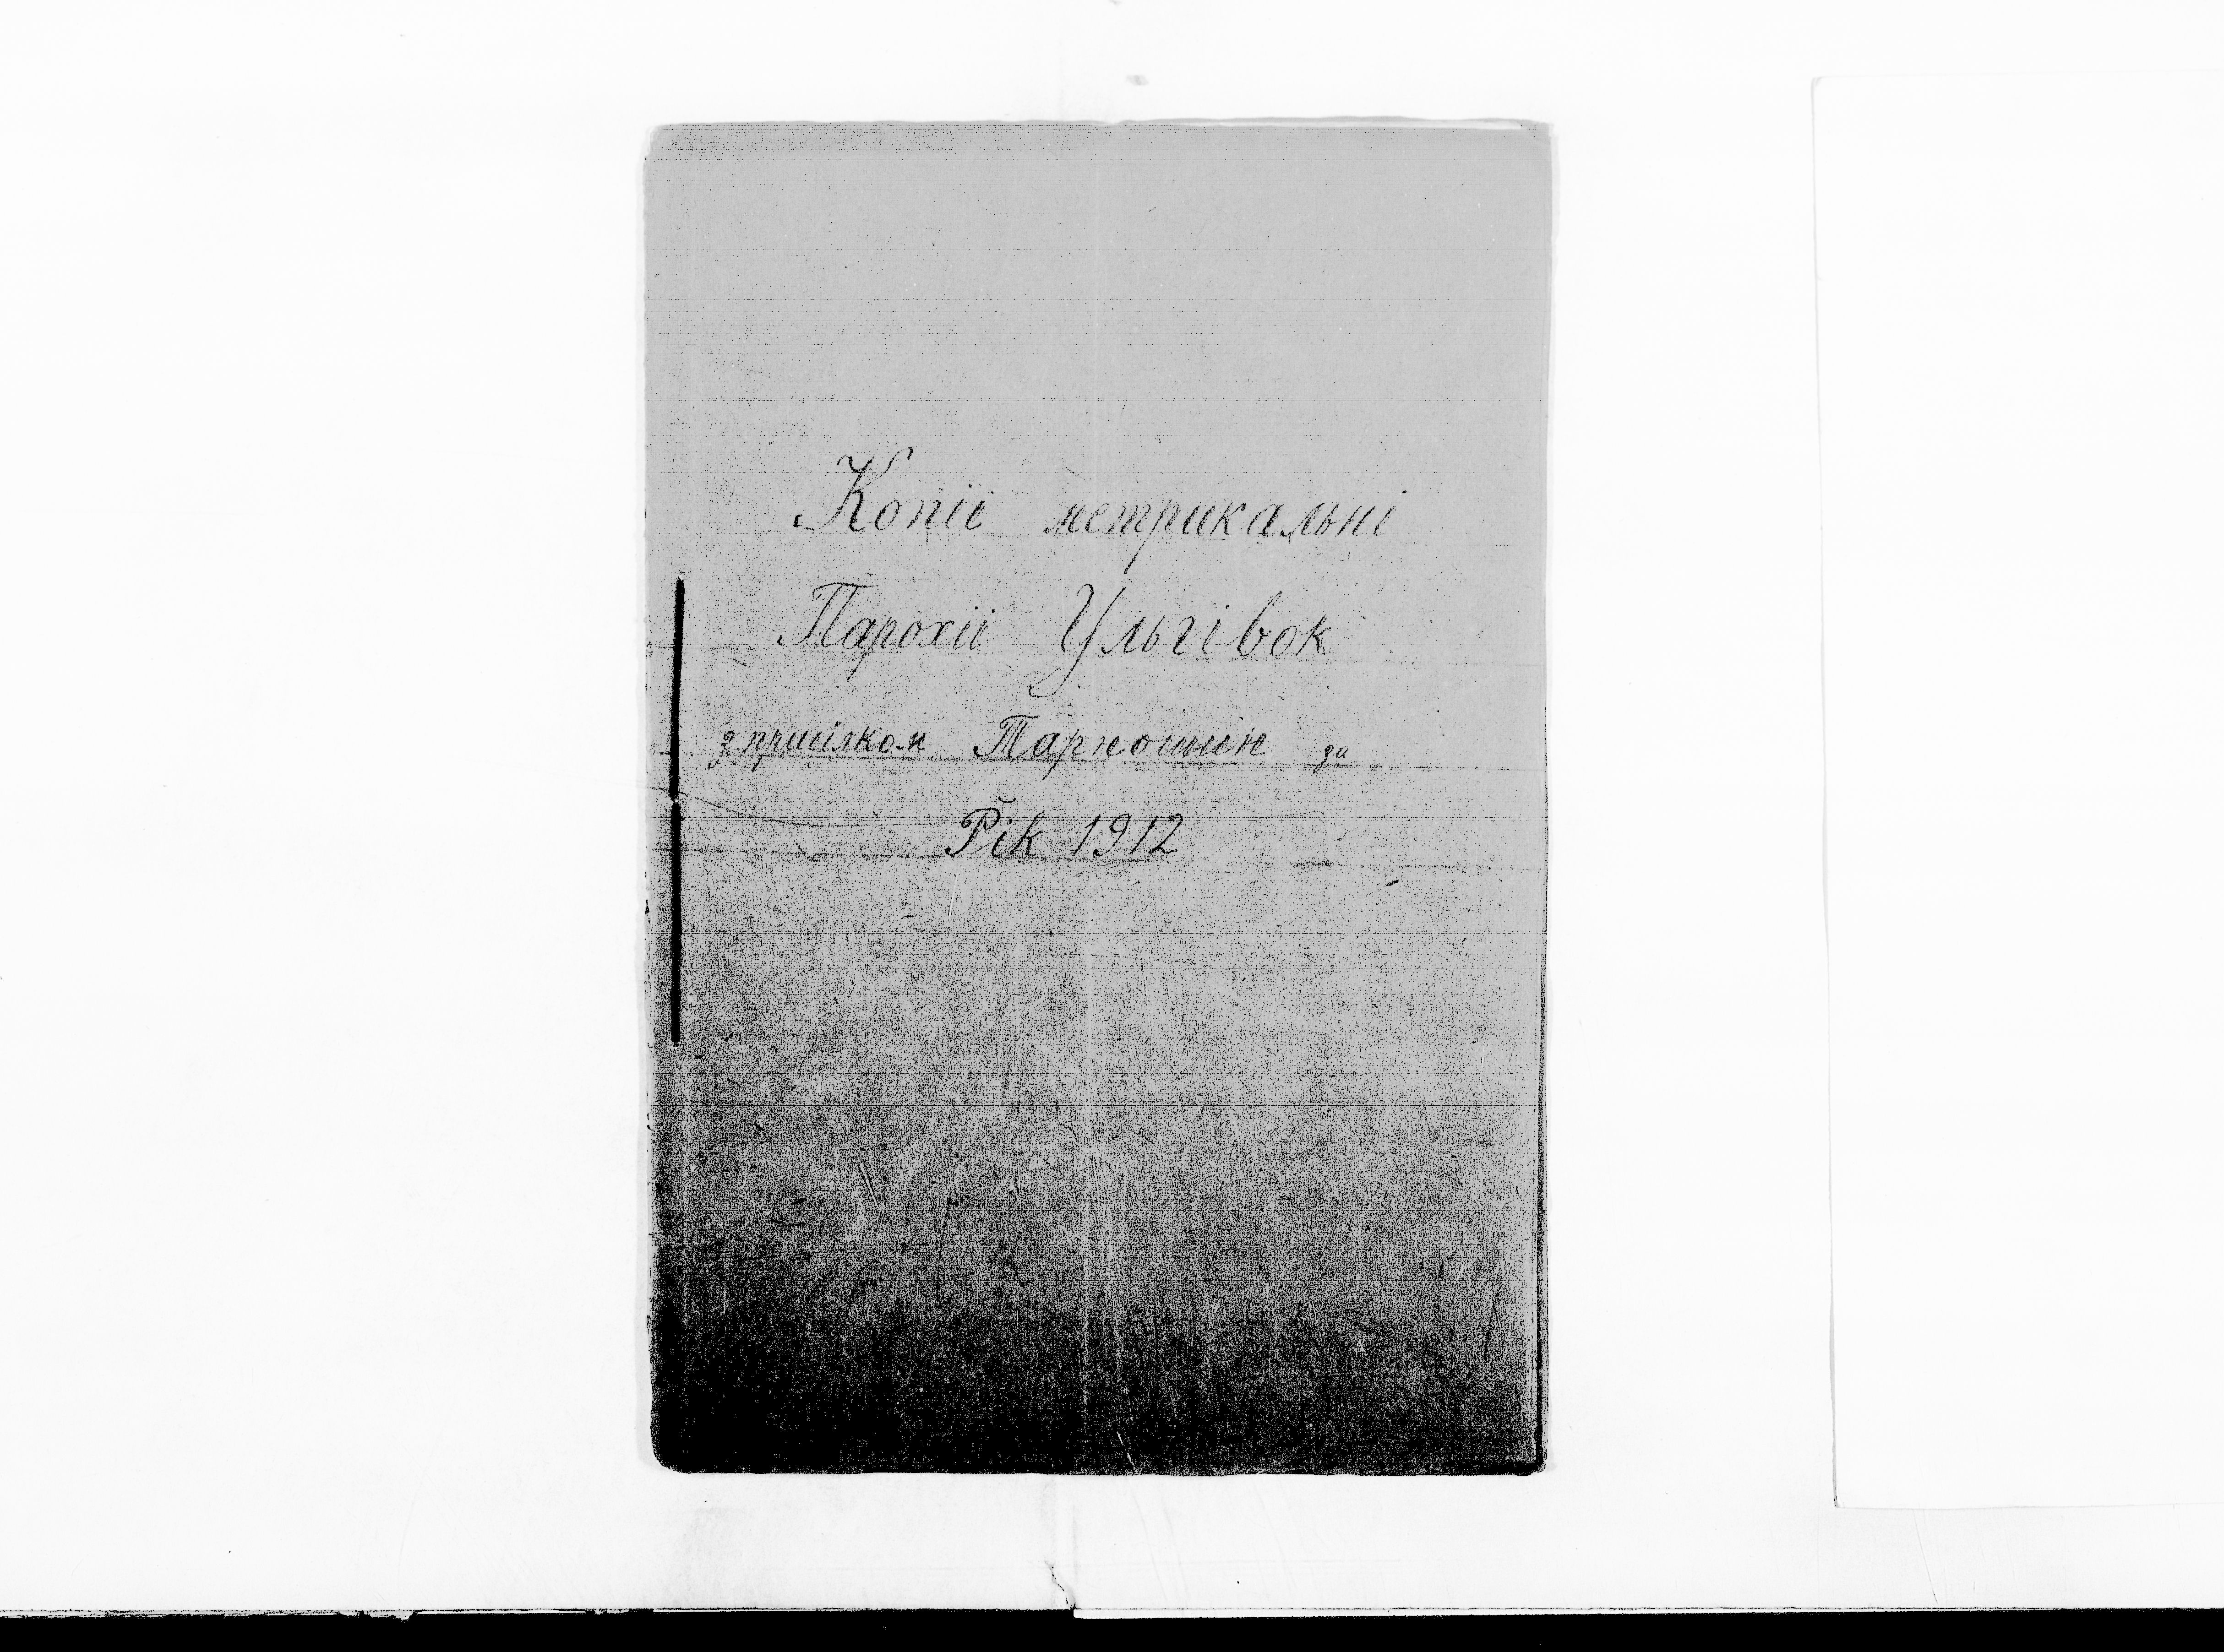 Копії метрикальні
Парохії Ульгівок
з присілком Тарношин за
Рік 1912